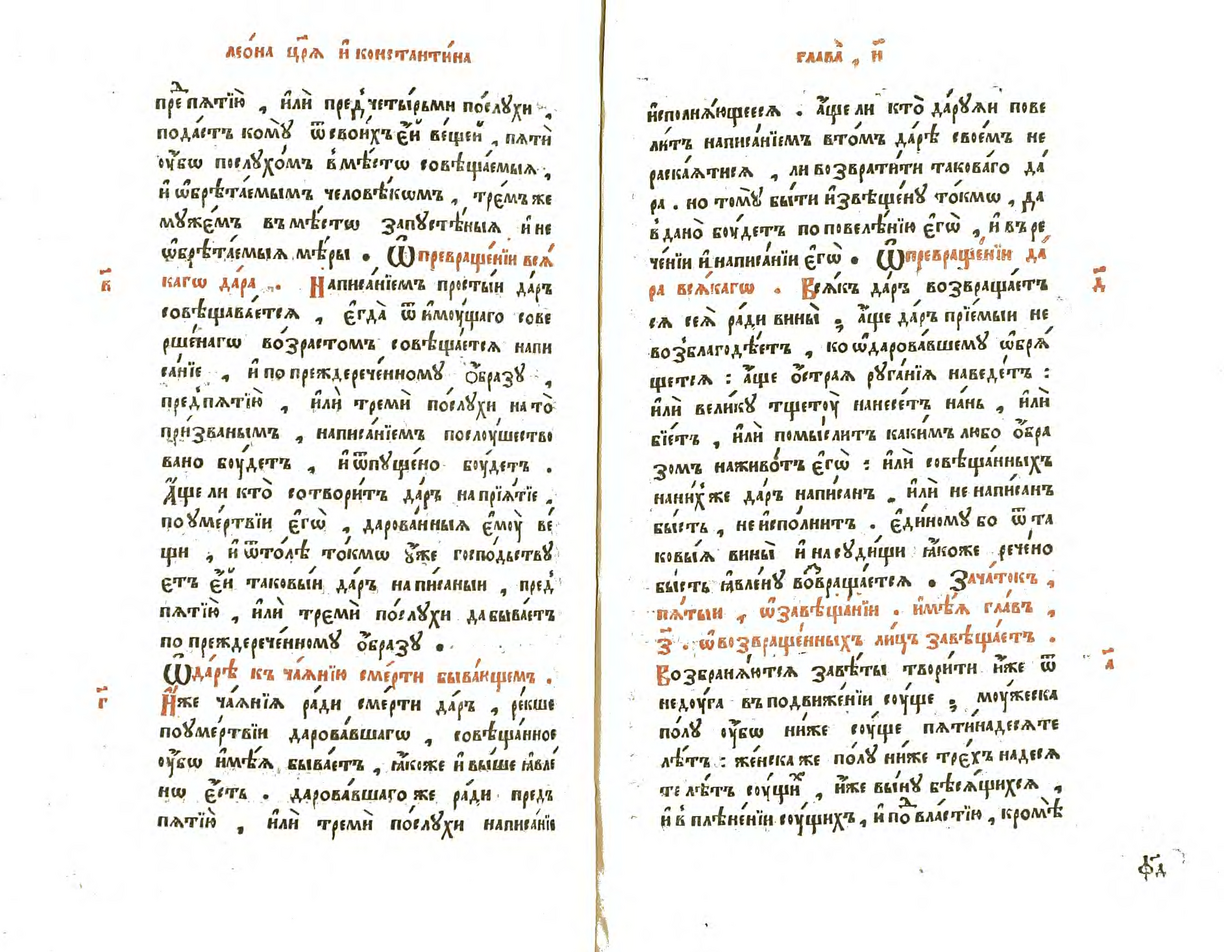 леѡ́на цр҃ѧ и҆ константи́на
пред̾ пѧтїю̀ , и҆лѝ пред̾ четы́рьми по́слꙋхи ,
пода́стъ комꙋ̀ ѿ свои́хъ є҆й веще́й , пѧтѝ
ᲂу҆́бѡ послꙋхо́мъ в̾мѣ́стѡ совѣща́емыѧ ,
и҆ ѡ҆брѣта́емымъ человѣ́кѡмъ , тре́мъ же
мꙋже́мъ въ мѣ́стѡ запꙋстѣ́ныѧ и҆ не
ѡ҆брѣта́емыѧ мѣ́ры . Ѿ превраще́нїи всѧ́
в҃
кагѡ да́ра . Написа́нїемъ просты́и да́ръ
совѣщава́етсѧ , є҆гда̀ ѿ и҆мᲂу́щаго сове
рше́нагѡ во́зрастомъ совѣща́етсѧ напи
са́нїе , и҆ по преждерече́нномꙋ ѻ҆́бразꙋ ,
пред̾ пѧтїю̀ , и҆лѝ тремѝ по́слꙋхи на то̀
при́званымъ , написа́нїемъ послᲂу́шество
вано бᲂу́детъ , и҆ ѿпꙋ́щено бᲂу́детъ .
А҆́ще ли кто̀ сотвори́тъ да́ръ на прїѧ́тїе ,
по ᲂу҆ме́ртвїи є҆гѡ̀ , дарова́нныѧ є҆мᲂу̀ ве́
щи , и҆ ѿто́лѣ то́кмѡ ᲂу҆́же госпо́дьствꙋ
етъ є҆й таковы́и да́ръ написа́ныи , пред̾
пѧтїю̀ , и҆лѝ тремѝ по́слꙋхи да быва́етъ
по преждерече́нномꙋ ѻ҆́бразꙋ .
Ѡ҆ да́рѣ къ ча́ѧнїю сме́рти быва́ющемъ .
г҃
И҆́же ча́ѧнїѧ ра́ди сме́рти да́ръ , ре́кше
по ᲂу҆ме́ртвїи дарова́вшагѡ , совѣща́нное
ᲂу҆́бѡ и҆мѣ́ѧ быва́етъ , ꙗ҆́коже и҆ вы́ше ꙗ҆вле́
нѡ є҆́сть . дарова́вшаго же ра́ди предъ
пѧтїю̀ , и҆лѝ тремѝ по́слꙋхи написа́нїе
глава̀ , и҃
и҆сполнѧ́ющеесѧ . а҆́ще ли кто̀ да́рꙋѧи пове
ли́тъ написа́нїемъ в то́мъ да́рѣ свое́мъ не
раска́ѧтисѧ , ли возврати́ти такова́го да́
ра . но томꙋ̀ бы́ти и҆звѣще́нꙋ то́кмѡ , да
в̾дано̀ бᲂу́детъ по повелѣ́нїю є҆гѡ̀ , и҆ въ ре
че́нїи и҆ написа́нїи є҆гѡ̀ . Ѿ превраще́нїи да́
д҃
ра всѧ́кагѡ . Всѧ́къ да́ръ возвраща́етъ
сѧ сеѧ̀ ра́ди вины̀ ; а҆́ще да́ръ прїе́мыи не
возблагодѣ́етъ , ко ѡ҆дарова́вшемꙋ ѡ҆брѧ́
щетсѧ : а҆́ще ѻ҆́страѧ рꙋга́нїѧ наведе́тъ :
и҆лѝ вели́кꙋ тщетᲂу̀ нанесе́тъ на́нь , и҆лѝ
бїе́тъ , и҆лѝ помы́слитъ каки́мъ любо ѻ҆́бра
зомъ на живо́тъ є҆гѡ̀ : и҆лѝ совѣща́нныхъ
на ни́хже да́ръ написан̀ , и҆лѝ не напи́санъ
бы́сть , не и҆спо́лнитъ . є҆ди́номꙋ бо ѿ та
ковы́ѧ вины̀ и҆ на сꙋди́щи ꙗ҆́коже рече́но
бы́сть ꙗ҆вле́нꙋ во́звраща́етсѧ . Зача́токъ ,
пѧ́тыи , ѡ҆ завѣща́нїи . и҆мѣ́ѧ гла́въ ,
з҃ . ѡ҆ возвраще́нныхъ ли́цъ завѣща́етъ .
а҃
Возбранѧ́ютсѧ завѣ́ты твори́ти и҆́же ѿ
недᲂу́га въ подвиже́нїи сᲂу́ще ; мᲂу́жеска
по́лꙋ ᲂу҆́бѡ ни́же сᲂу́ще пѧтина́десѧте
лѣ́тъ : же́нска же по́лꙋ ни́же тре́хъ надесѧ
те лѣ́тъ сᲂу́щих̾ , и҆́же вы́нꙋ бѣсѧ́щихсѧ ,
и҆ в̾ плѣне́нїи сᲂу́щихъ , и҆ под̾ вла́стїю , кро́мѣ
ф҃д